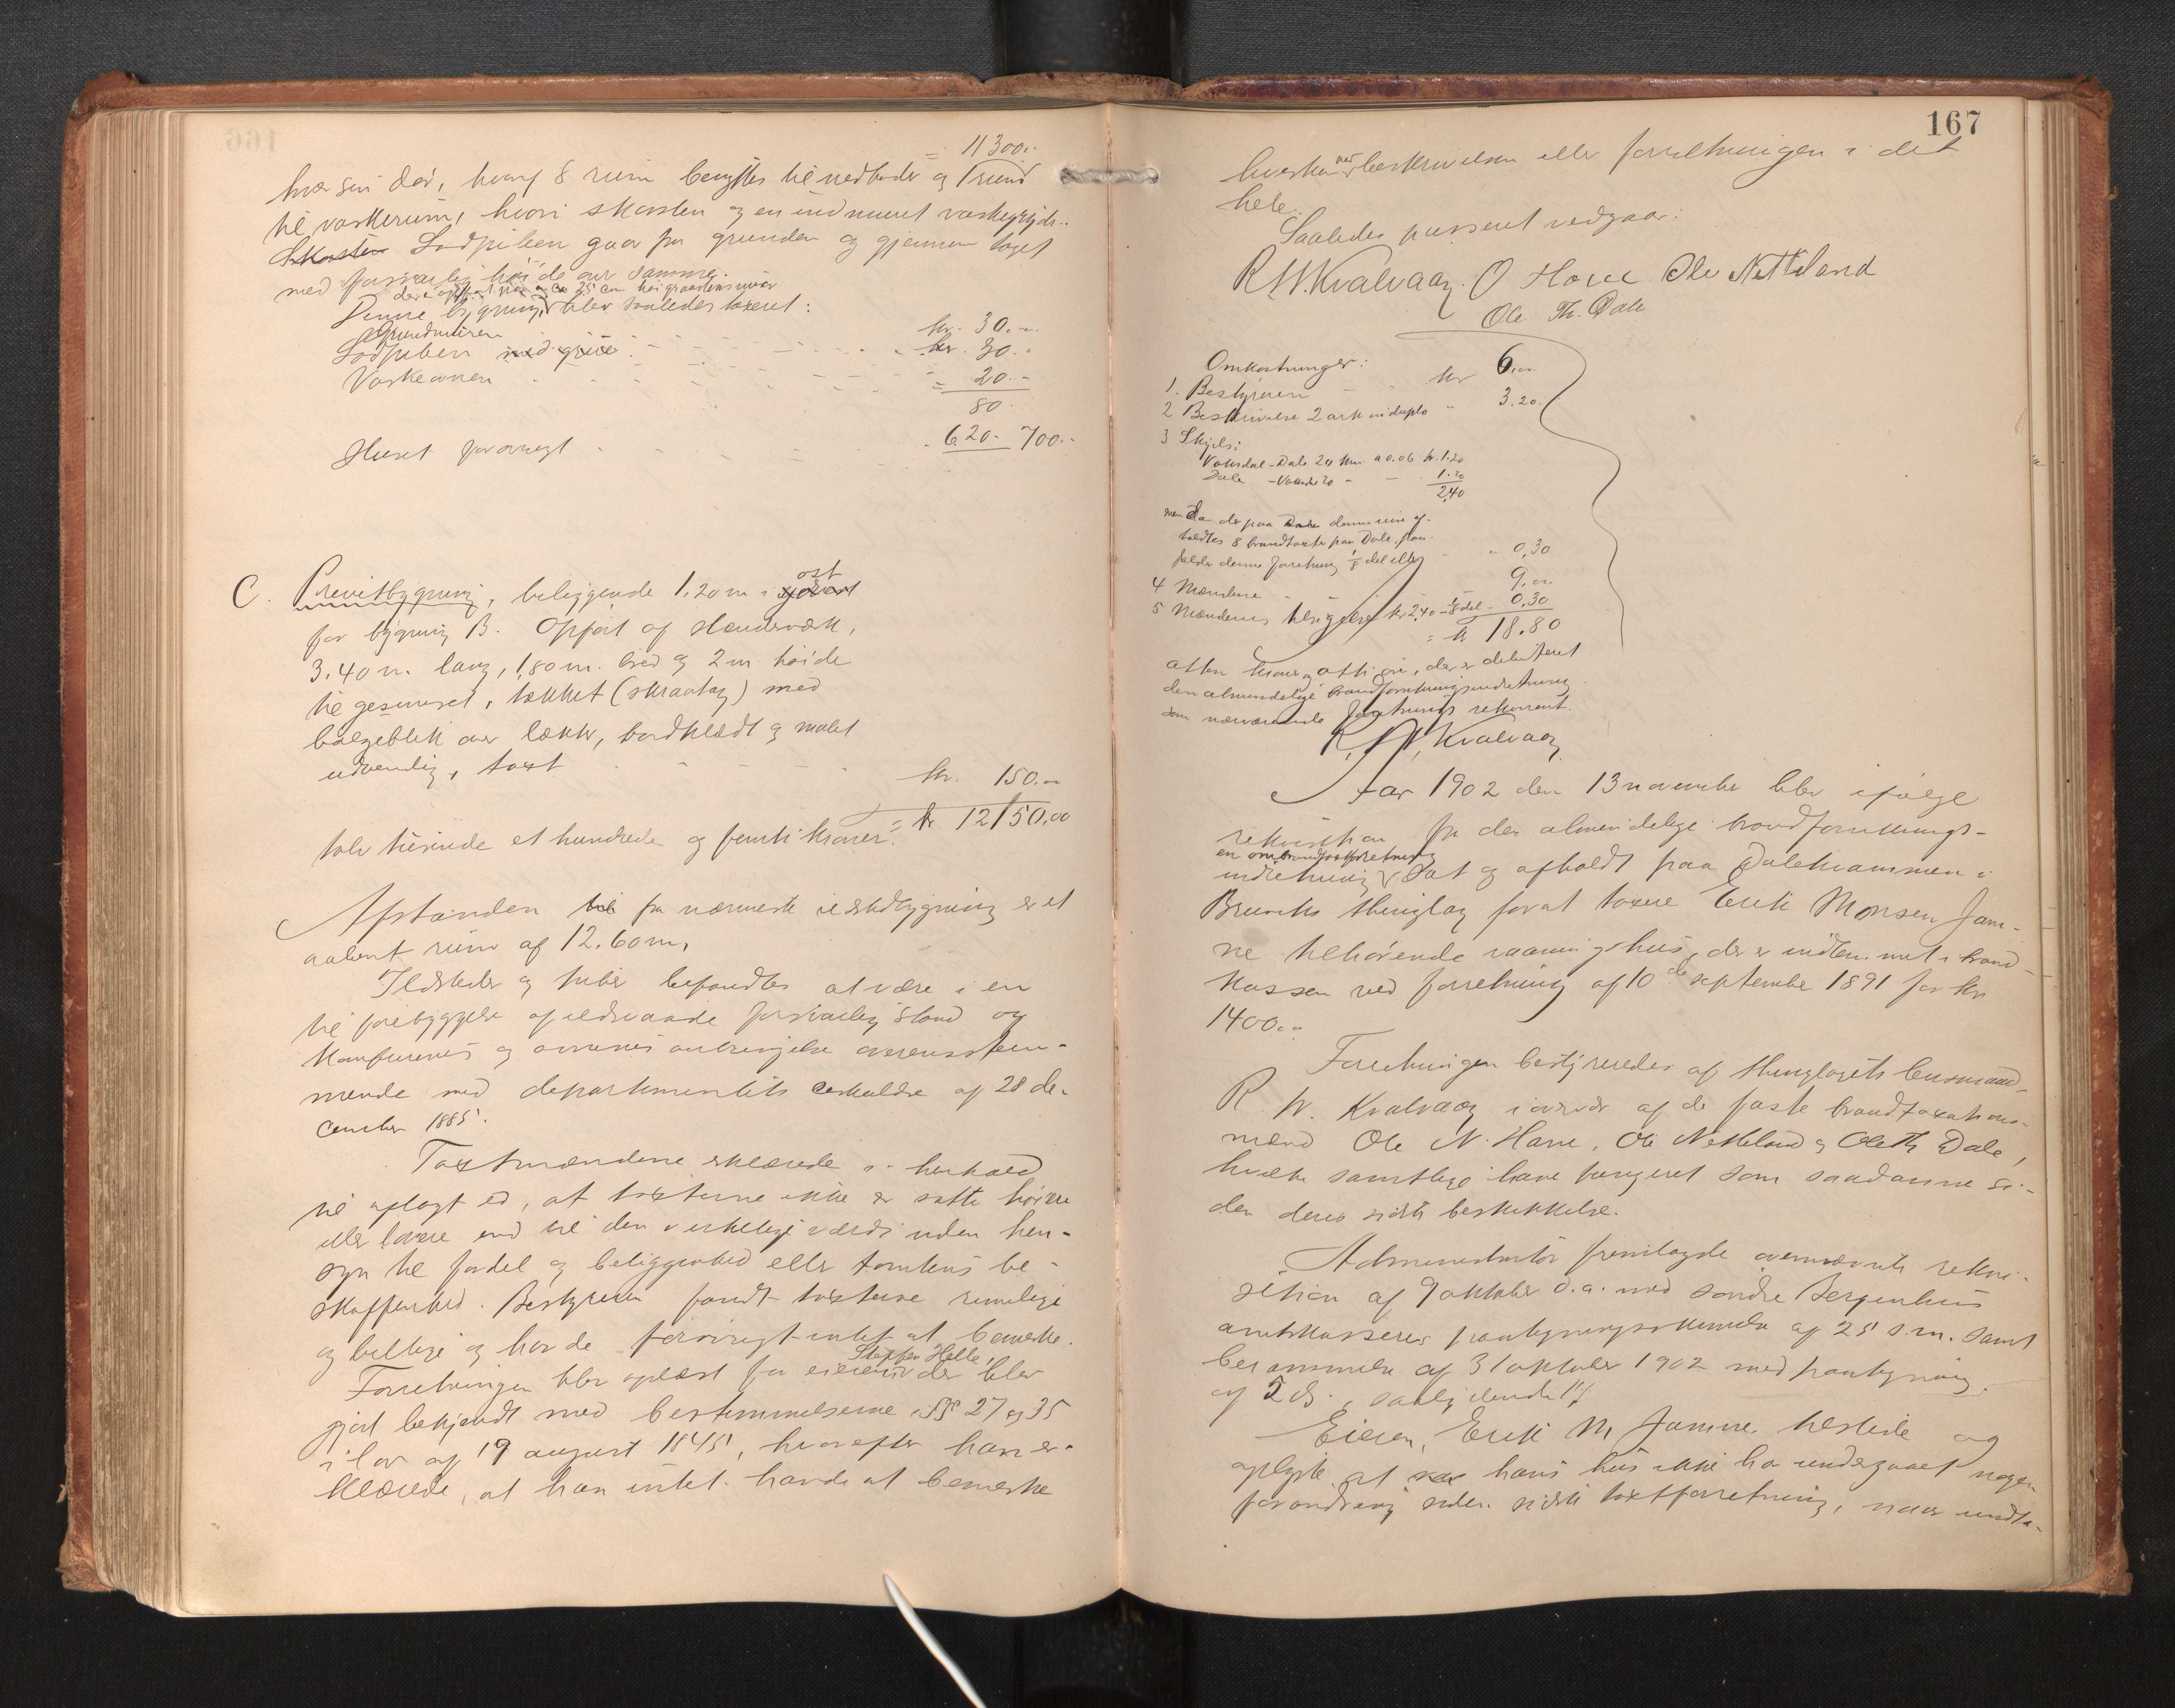 = 11300..
hver sin dør, hvoraf 8 rum benyttes til vedboder og 1 rum
til vaskerum, hvori skorsten og en indmuret vaskegryde..
Skorsten Sodpiben gaar fra grunden og gjennem taget
med forsvarlig høide over samme.
der er opført paa ca 25 cm høi graastensmur
Denne bygning blev saaledes taxeret:
Grundmuren kr. 30..
Sodpiben med grue kr. 30..
Vaskeovnen = 20..
80.
Huset forøvrigt 620.. 700..
C. Privetbygning, beliggende 1.20 m i ost
for bygning B. Opført af stenderværk,
3.40 m. lang, 1,80 m. bred og 2 m høide
til gesimset, tækket (skraatag) med
bølgeblik over lækter, bordklædt og malet
udvendig, taxt kr. 150..
= kr 12150,00
tolv tusinde et hundrede og femti kroner.
Afstanden til fra nærmeste ildstedbygning er et
aabent rum af 12.60 m.
Ildsteder og piber befandtes at være i en
til forebyggelse af ildsvaade forsvarlig stand og
kakkelovnenes og ovnenes anbringelse overensstem-
mende med departementets cirkulære af 28 de-
cember 1885.
Taxtmændene erklærede i henhold
til aflagt ed, at taxterne ikke er satte høiere
eller lavere end til den virkelige værdi uden hen-
syn til fordel og beliggenhed eller tomtens be-
skaffenhed. Bestyreren fandt taxterne rimelige
og billige og havde forøvrigt intet at bemerke.
Steffen Helle,
Forretningen blev oplæst for eieren der blev
gjort bekjendt med bestemmelserne i §§ 27 og 35
i lov af 19 august 1845, hvorefter han er-
klærede, at han intet havde at bemerke
167
hverken ved beskrivelsen eller forretningen i det
hele.
Saaledes passeret vedgaar.
R.W. Kvalvaag. O Horve Ole Netteland
Ole Th. Dale
Omkostninger:
1. Bestyreren kr 6,..
2 Beskrivelse 2 ark in duplo - 3.20.
3 Skyds:
Vaksdal - Dale 20 km a 0.06 kr. 1.20
Dale - Vaksdal 20 - 1.20
2,40
men da der paa denne reise af-
holdtes 8 brandtaxter paa Dale, paa-
falder denne forretning 1/8 del eller - 0,30
4 Mændene 9,..
5 Mændenes kr 2,40 - 1/8 del - 0.30
= kr 18.80
atten kroner og otti øre, der er debiteret
den almindelige brandforsikringsindretning
som nærværende forretnings rekvirent.
R. W. Kvalvaag
Aar 1902 den 13 november blev ifølge
rekvisition fra den almindelige brandforsikrings-
en ombrandtaxtforretning
indretning sat og afholdt paa Dalekvammen i
Bruviks thinglag forat taxere Erik Monsen Jam-
ne tilhørende vaaningshus, der er indtegnet i brand-
kassen ved forretning af 10de september 1891 for kr
1400..
Forretningen bestyredes af thinglagets lensmand
R. W. Kvalvaag i overvær af de faste brandtaxations-
mænd Ole N. Horve, Ole Netteland og Ole Th Dale,
hvilke samtlige have fungeret som saadanne si-
den deres sidste beskikkelse.
Administrator fremlagde ovennævnte rekvi-
sition af 9 oktober d.a. med søndre Bergenhus
amtskasserers paategningsskrivelse af 25 s.m. samt
berammelse af 31 oktober 1902 med paategning
af 5 ds, saalydende:
Eieren, Erik M Jamne tilstede og
oplyste at hans hus ikke har undergaaet nogen
forandring siden sidste taxtforretning, naar undta-